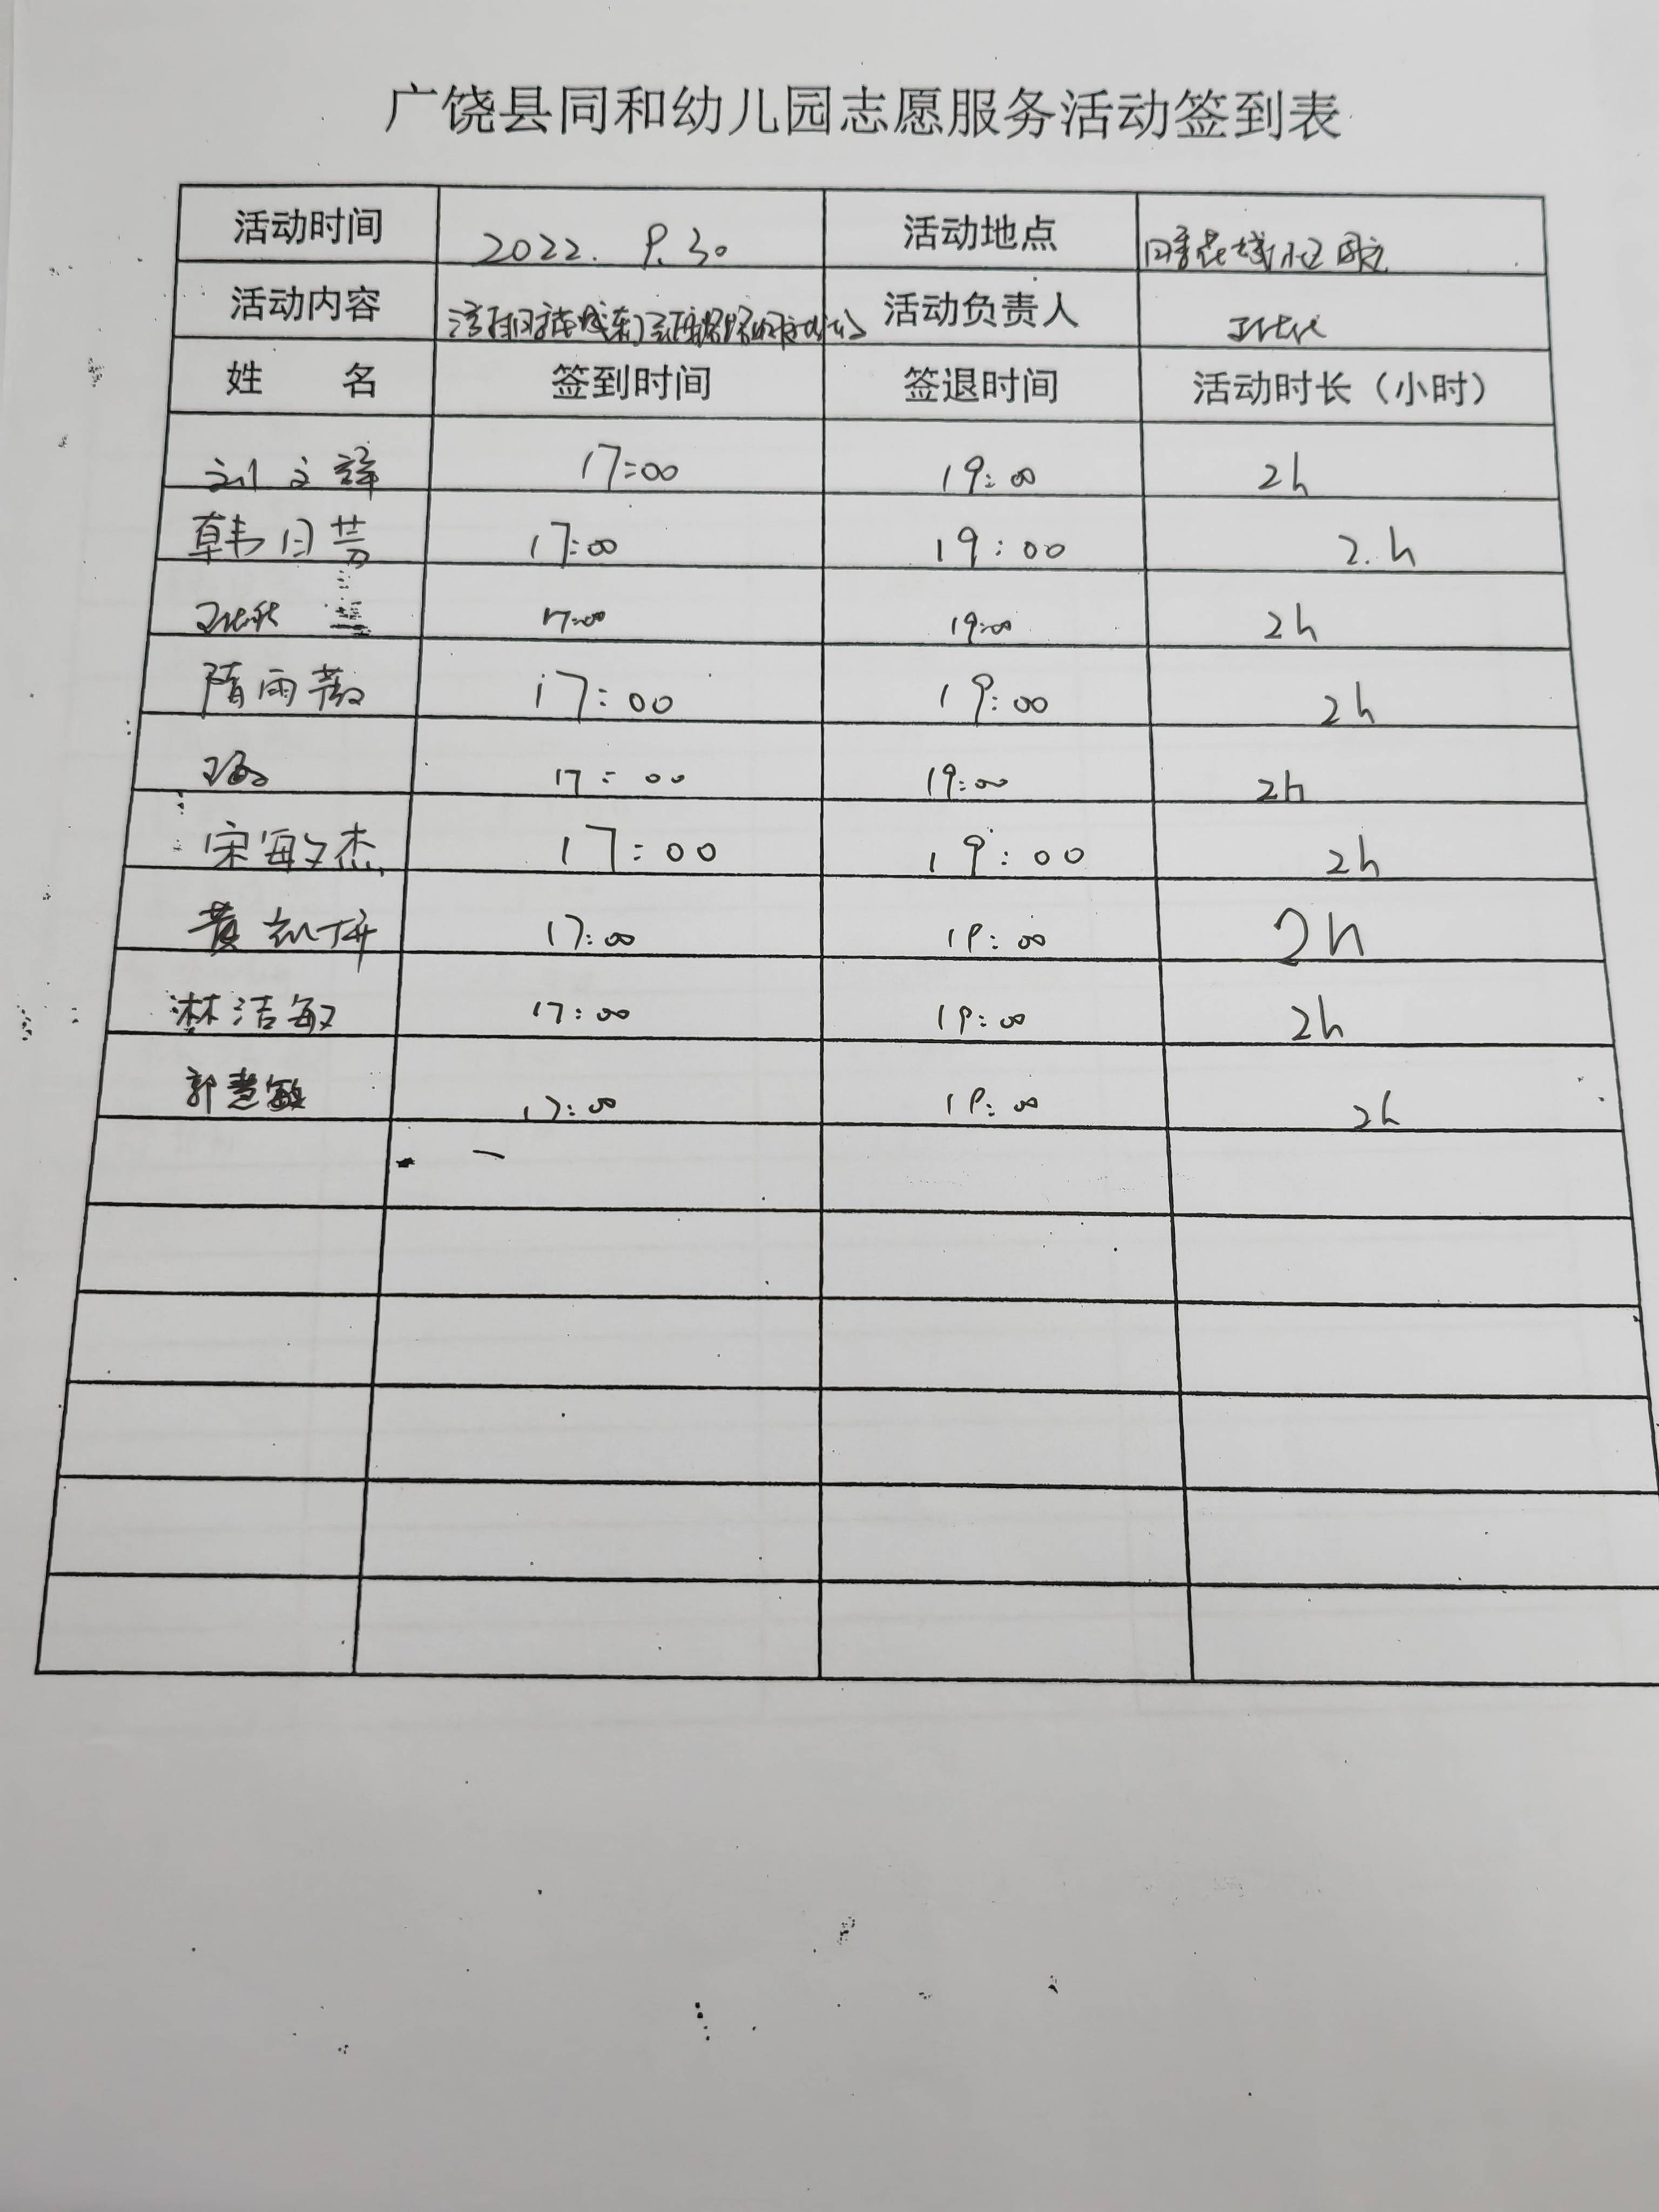 广饶县同和幼儿园志愿服务活动签到表
活动时间 2022. 9.30 活动地点
活动内容 活动负责人
姓 名 签到时间 签退时间 活动时长（小时）
刘文 17:00 19:00 2h
韩月芳 17:00 19:00 2.h
17:00 19:00 2h
隋雨薇 17:00 19:00 2h
王 17:00 19:00 2h
宋敏杰 17:00 19:00 2h
黄 17:00 19:00 2h
林洁敏 17:00 19:00 2h
郭慧敏 17:00 19:00 2h